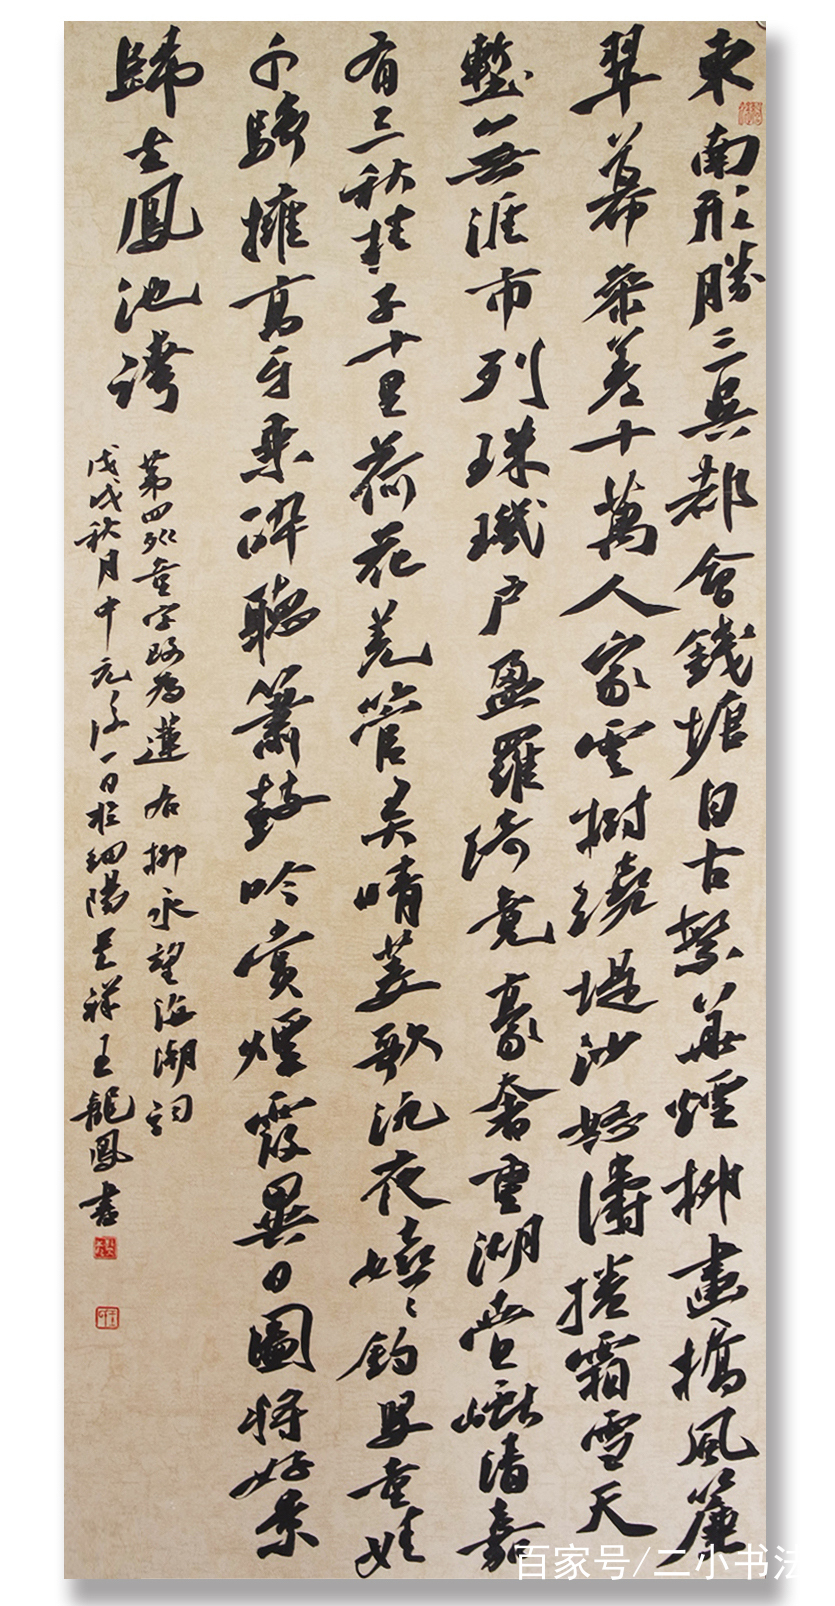 東南形勝三吳都會錢塘自古繁華煙柳畫橋風簾
翠幕參差十萬人家雲樹繞堤沙怒濤捲霜雪天
塹無涯市列珠璣戶盈羅綺競豪奢重湖疊巘清嘉
有三秋桂子十里荷花羌管弄晴菱歌泛夜嬉〻釣叟童娃
千騎擁高牙乘醉聽簫鼓吟賞煙霞異日圖將好景
歸去鳳池誇
第四童字改為蓮 右柳永望海潮詞
戊戌秋月中元後一日於細陽祥王龍鳳書
百家号/二小书法